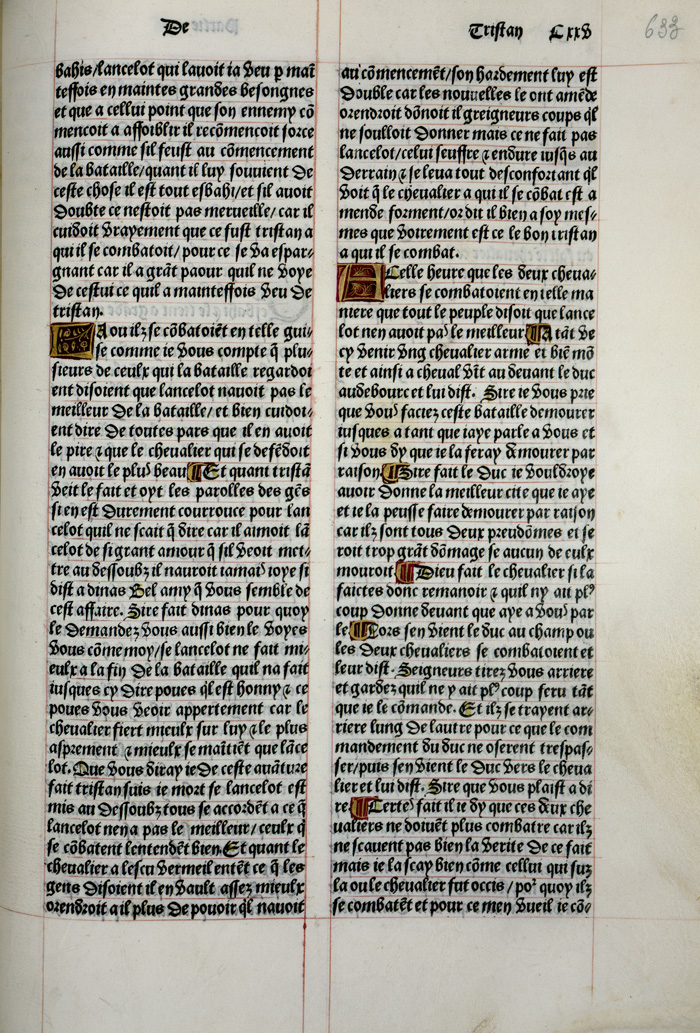 De
Tristan Cxxv
633
bahis/lancelot qui lauoit ia veu p mai͂
teffois en maintes grandes besongnes
et que a cellui point que son ennemy cō
mencoit a affoiblir il recōmencoit force
aussi comme sil feust au cōmencement
de la bataille/quant il luy souuient de
ceste chose il est tout esbahi/et sil auoit
doubte ce nestoit pas merueille/car il
cuidoit vrayement que ce fust tristan a
qui il se combatoit/pour ce se va espar-
gnant car il a grāt paour quil ne voye
de cestui ce quil a mainteffois veu de
tristan.
La ou ilz se cōbatoiēt en telle gui-
se comme ie vous compte q̄ plu-
sieurs de ceulx qui la bataille regardoi
ent disoient que lancelot nauoit pas le
meilleur de la bataille/et bien cuidoi-
ent dire de toutes pars que il en auoit
le pire ⁊ que le cheualier qui se defēdoit
en auoit le plus beau ¶Et quant tristā
veit le fait et oyt les parolles des gēs
si en est durement courrouce pour lan
celot quil ne scait q̄ dire car il aimoit lā
celot de si grant amour q̄ sil veoit met-
tre au dessoubz il nauroit iamais ioye si
dist a dinas Bel amy q̄ vous semble de
cest affaire. Sire fait dinas pour quoy
le demandez vous aussi bien le voyes
vous cōme moy/se lancelot ne fait mi-
eulx a la fin de la bataille quil na fait
iusques cy dire poues q̄l est honny ⁊ ce
poues vous veoir appertement car le
cheualier fiert mieulx sur luy ⁊ le plus
asprement ⁊ mieulx se maītiēt que lāce
lot. Que vous diray ie de ceste auāture
fait tristan suis ie mort se lancelot est
mis au dessoubz tous se accordēt a ce q̄
lancelot nen a pas le meilleur/ceulx q̄
se cōbatent lentendēt bien. Et quant le
cheualier a lescu vermeil entēt ce q̄ les
gens disoient il en vault assez mieulx
orendroit a il plus de pouoir q̄l nauoit
au cōmencemēt/son hardement luy est
double car les nouuelles le ont amēde
orendroit dōnoit il greigneurs coups q̄l
ne soulloit donner mais ce ne fait pas
lancelot/celui seuffre ⁊ endure iusq̄s au
derrain ⁊ se leua tout desconfortant q̄l
voit q̄ le cheualier a qui il se cōbat est a
mende forment/or dit il bien a soy mes-
mes que voirement est ce le bon tristan
a qui il se combat.
A celle heure que les deux cheua-
liers se combatoient en telle ma
niere que tout le peuple disoit que lance
lot nen auoit pas le meilleur ¶A tāt ve
cy venir vng cheualier arme et biē mō
te et ainsi a cheual vīt au deuant le duc
audebourc et lui dist. Sire ie vous prie
que vous faciez ceste bataille demourer
iusques a tant que iaye parle a vous et
si vous dy que ie la feray demourer par
raison ¶Sire fait le duc ie vouldroye
auoir donne la meilleur cite que ie aye
et ie la peusse faire demourer par raison
car ilz sont tous deux preudōmes et se
roit trop grāt dōmage se aucun de eulx
mouroit ¶Dieu fait le cheualier si la
faictes donc remanoir ⁊ quil ny ait plꝰ
coup donne deuant que aye a vous par
le ¶Lors sen vient le duc au champ ou
les deux cheualiers se combatoient et
leur dist. Seigneurs tirez vous arriere
et gardez quil ne y ait plꝰ coup feru tāt
que ie le cōmande. Et ilz se trayent ar-
riere lung de lautre pour ce que le com
mandement du duc ne oserent trespas-
ser/puis sen vient le duc vers le cheua
lier et lui dist. Sire que vous plaist a di
re ¶Certes fait il ie dy que ces deux che
ualiers ne doiuēt plus combatre car ilz
ne scauent pas bien la verite de ce fait
mais ie la scay bien cōme cellui qui fuz
la ou le cheualier fut occis/poꝛ quoy ilz
se combatēt et pour ce men vueil ie cō-